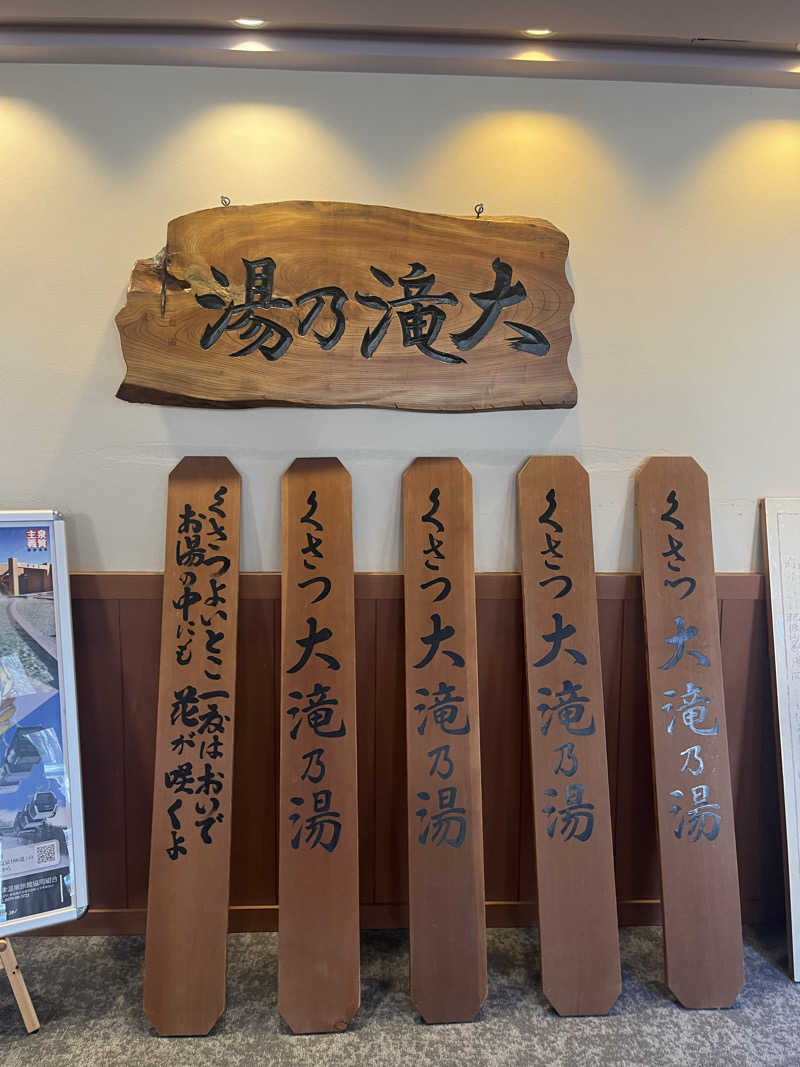 大滝乃湯
くさつ大滝乃湯
くさつ大滝乃湯
くさつ大滝乃湯
くさつ大滝乃湯
くさつよいとこ一度はおいで
お湯の中にも花が咲くよ
泉質
主義
温泉旅館協同組合